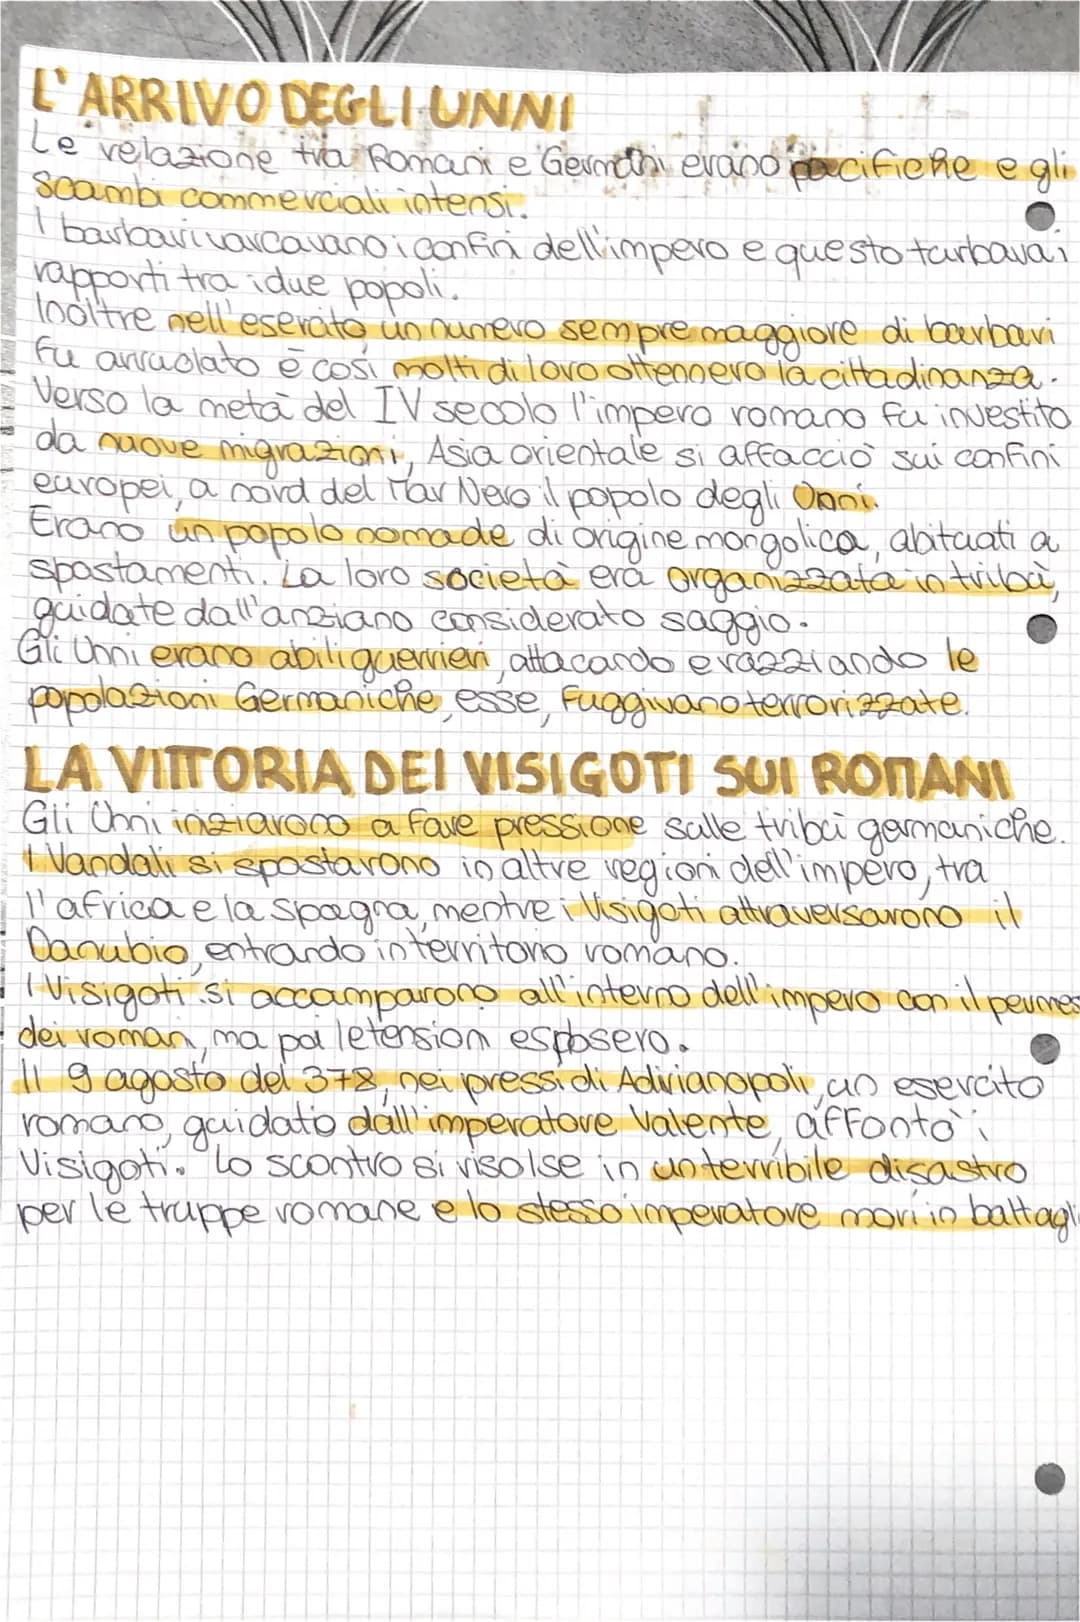 L'ARRIVO DEGLI UNNI
Le relazione tra Romani e Germani erano pacifiche e gli
scambi commerciali intensi.
I barbari varcavano i confini dell'impero e questo turbava i
rapporti tra i due popoli.
Inoltre nell'esercito, un numero sempre maggiore di barbari
fu arruolato e così molti di loro ottennero la cittadinanza.
Verso la metà del IV secolo l'impero romano fu investito
da nuove migrazioni, Asia orientale si affacciò sui confini
europei, a nord del Mar Nero il popolo degli Unni.
Erano un popolo nomade di origine mongolica, abituati a
spostamenti. La loro società era organizzata in tribù,
guidate dall'anziano considerato saggio.
Gli Unni erano abili guerrieri, attacando e razziando le
popolazioni Germaniche, esse, fuggivano terrorizzate.
LA VITTORIA DEI VISIGOTI SUI ROMANI
Gli Unni iniziarono a fare pressione sulle tribù germaniche.
I Vandali si spostarono in altre regioni dell'impero, tra
l'africa e la Spagna, mentre i Visigoti attraversarono il
Danubio, entrando in territorio romano.
I Visigoti si accamparono all'interno dell'impero con il permes
dei romani, ma poi le tensioni esplosero.
Il 9 agosto del 378, nei pressi di Adirianopoli, un esercito
romano, guidato dall'imperatore Valente, affontò i
Visigoti. Lo scontro si risolse in un terribile disastro
per le truppe romane e lo stesso imperatore morì in battagli